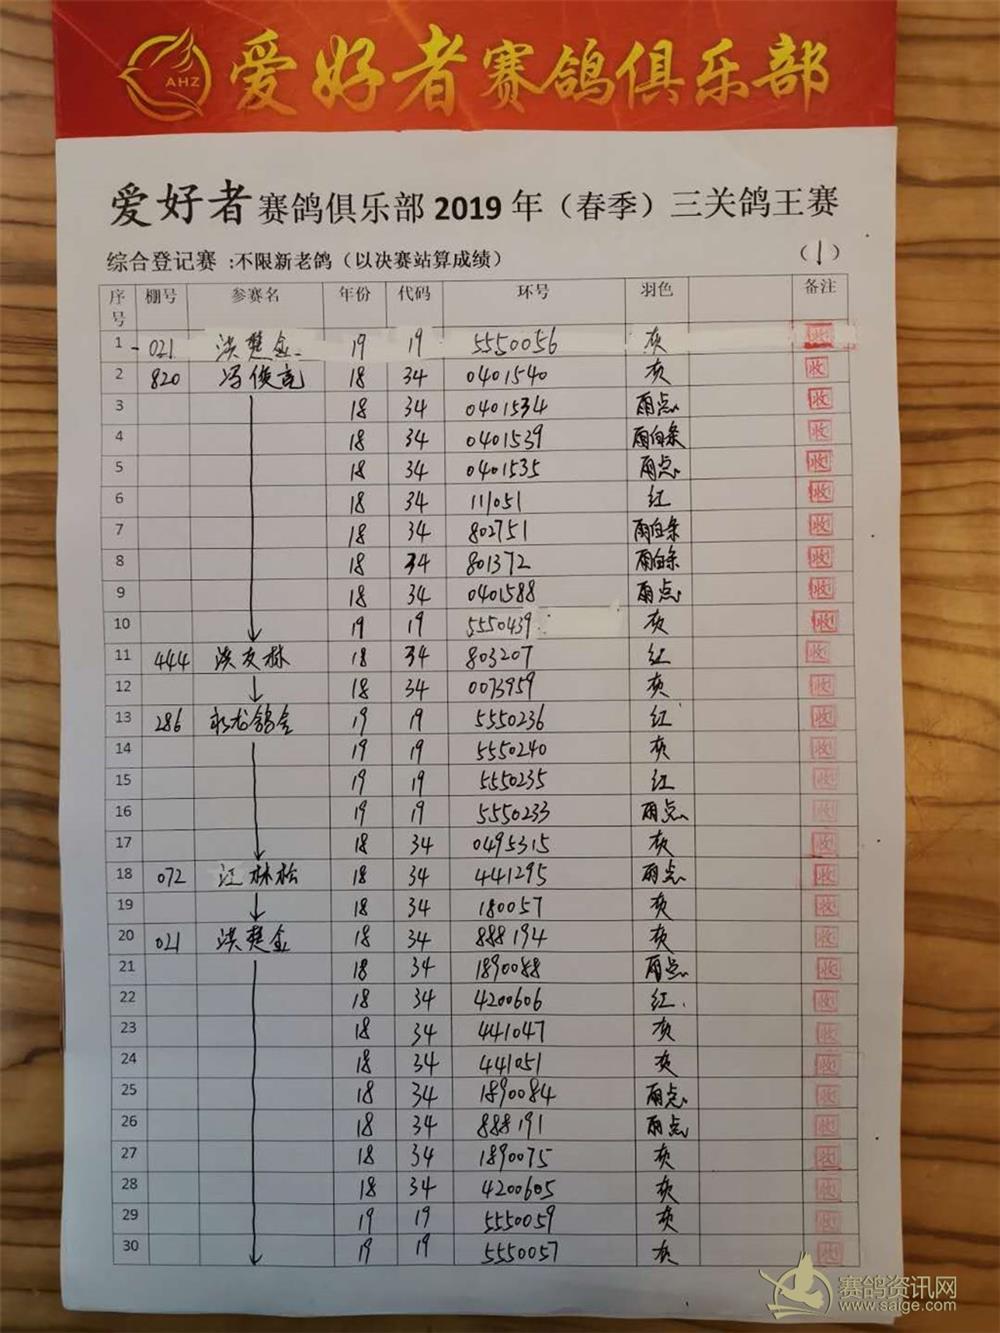 AHZ 爱好者赛鸽俱乐部
爱好者赛鸽俱乐部2019年（春季）三关鸽王赛
综合登记赛 :不限新老鸽（以决赛站算成绩） （1）
序号 棚号 参赛名 年份 代码 环号 羽色 备注
1 -021 洪楚金 19 19 5550056 灰 收
2 820 冯俊亮 18 34 0401540 灰 收
3 18 34 0401534 雨点 收
4 18 34 0401539 雨白条 收
5 18 34 0401535 雨点 收
6 18 34 111051 红 收
7 18 34 802751 雨白条 收
8 18 34 801372 雨白条 收
9 18 34 0401588 雨点 收
10 19 19 5550439 灰 收
11 444 洪友林 18 34 803207 红 收
12 18 34 0073959 灰 收
13 286 龙鸽舍 19 19 5550236 红 收
14 19 19 5550240 灰 收
15 19 19 5550235 红 收
16 19 19 5550233 雨点 收
17 18 34 0495315 灰 收
18 072 江林松 18 34 441295 雨点 收
19 18 34 180057 灰 收
20 021 洪楚金 18 34 888194 灰 收
21 18 34 1890088 雨点 收
22 18 34 4200606 红 收
23 18 34 441047 灰 收
24 18 34 441051 灰 收
25 18 34 1890084 雨点 收
26 18 34 888191 雨点 收
27 18 34 1890075 灰 收
28 18 34 4200605 灰 收
29 19 19 5550059 灰 收
30 19 19 5550057 灰 收
赛鸽资讯网
www.saige.com